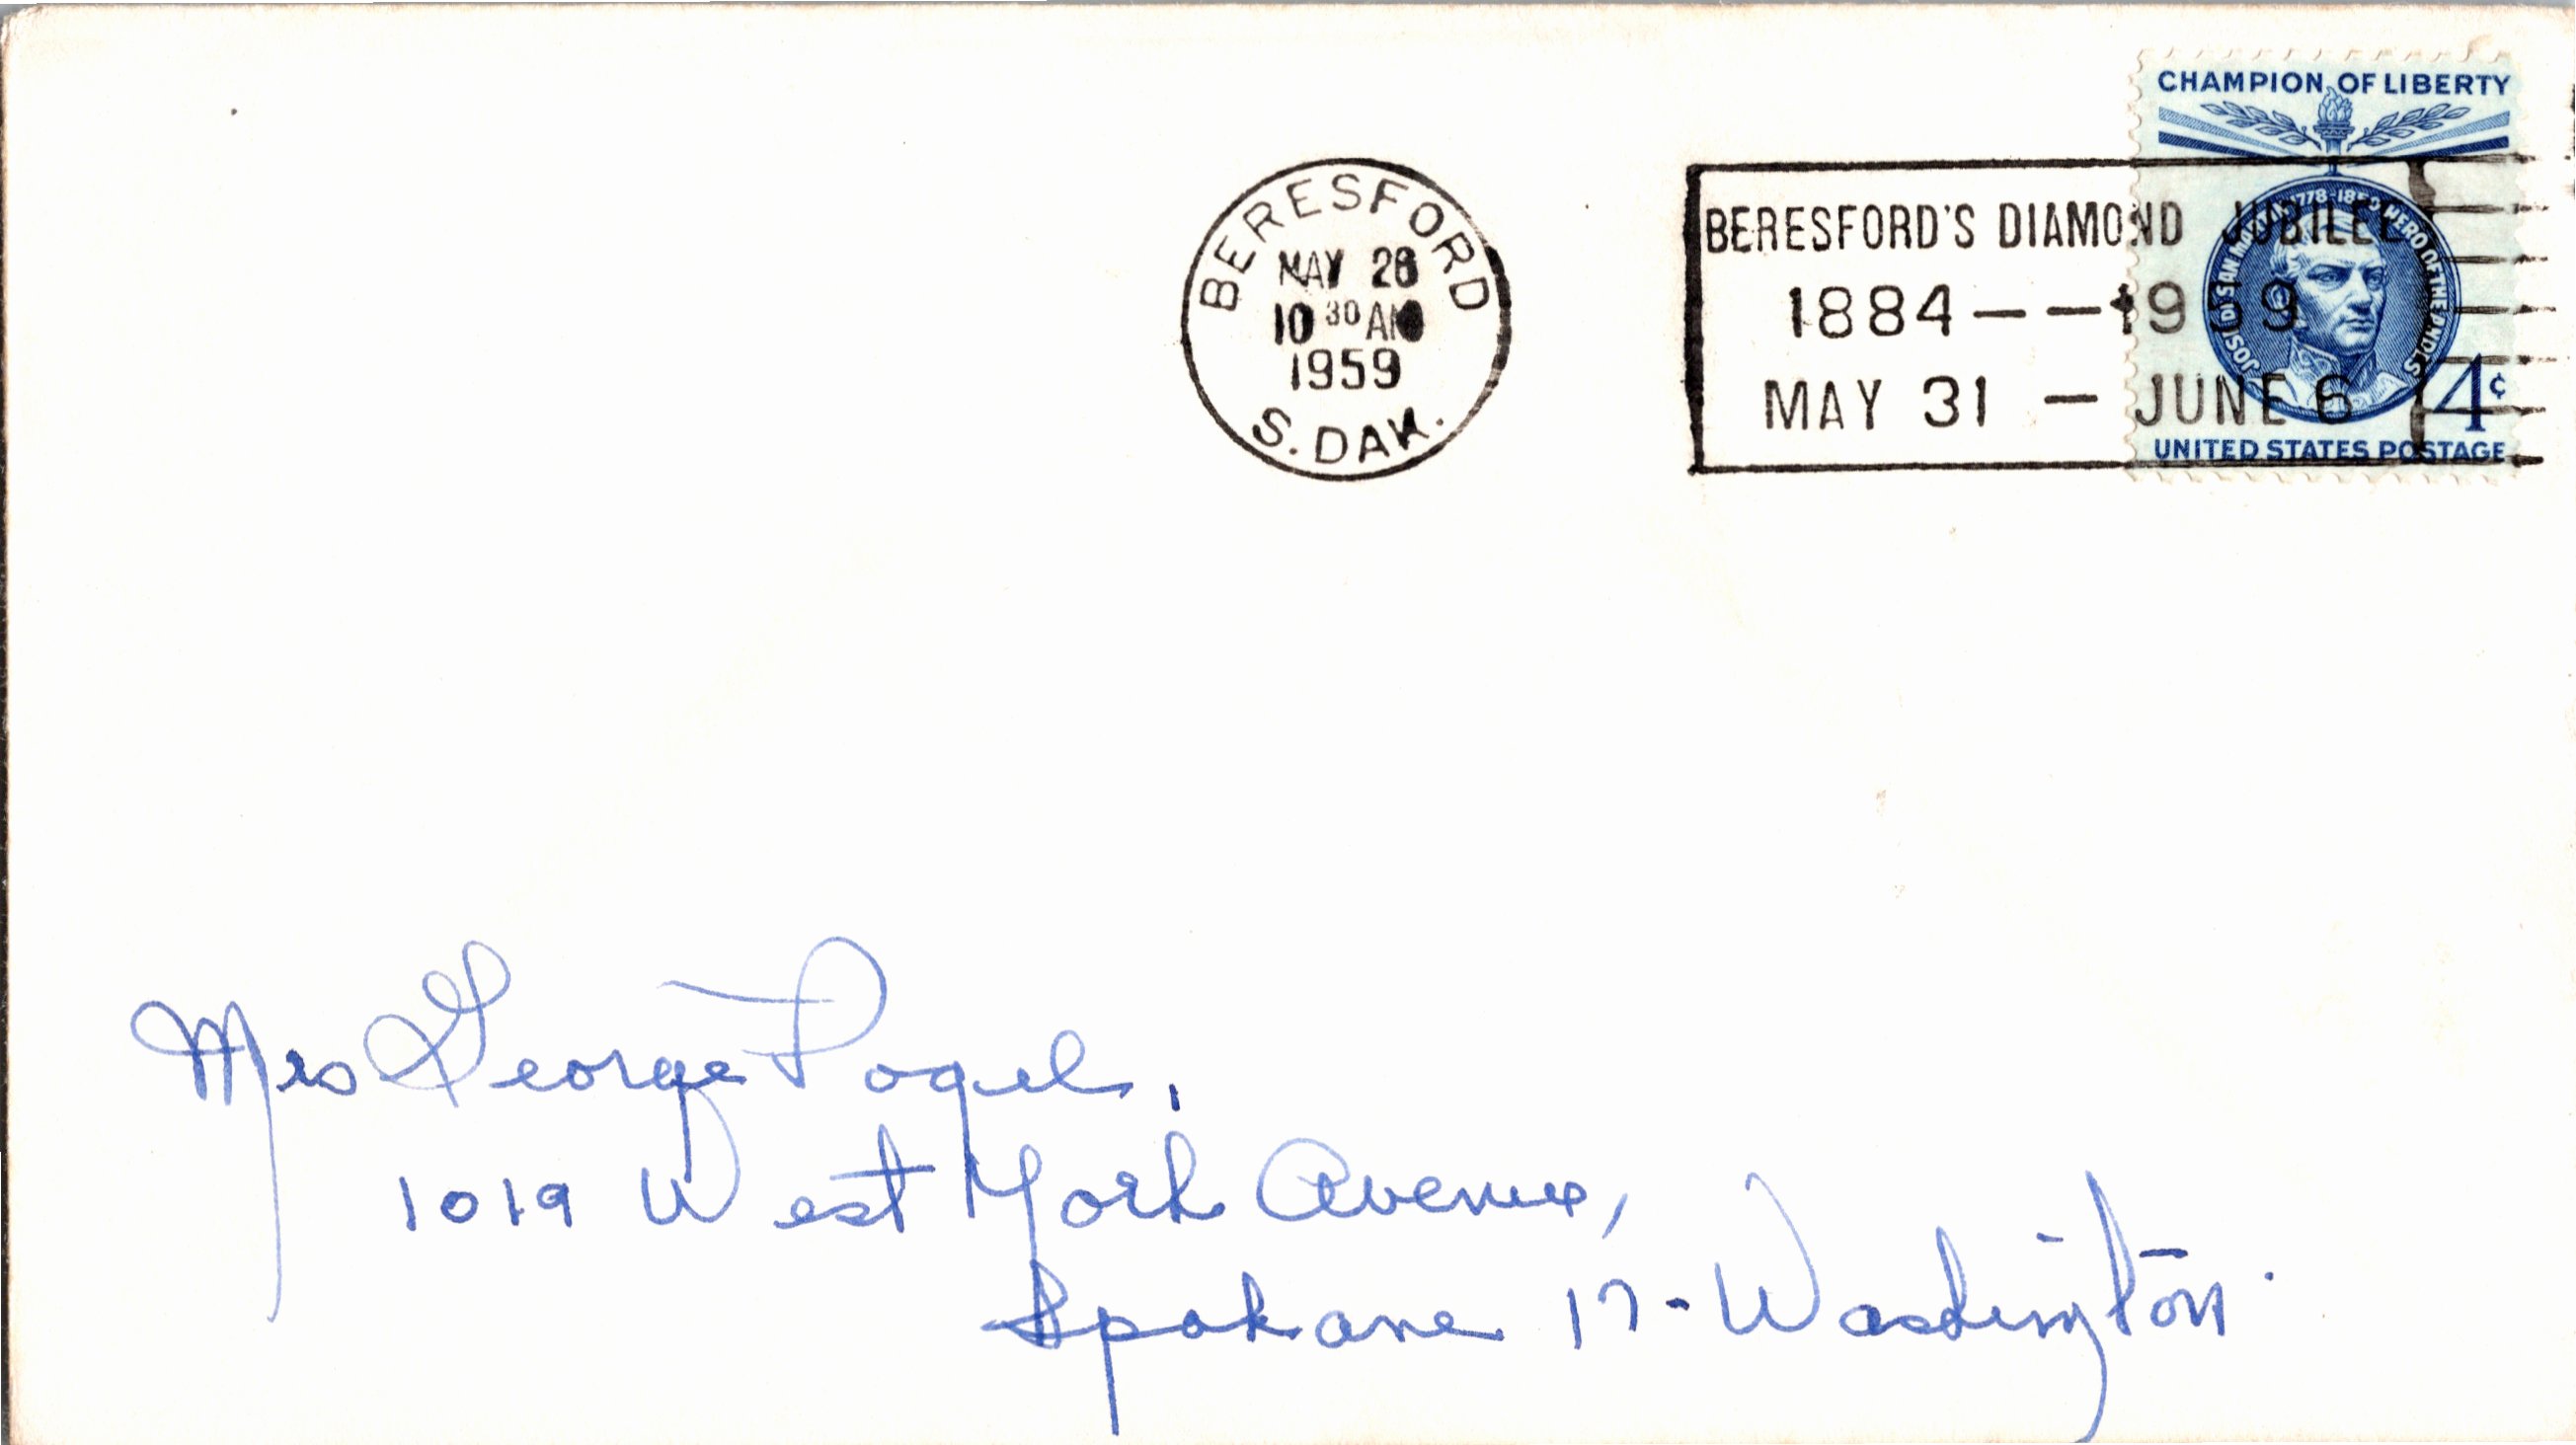 CHAMPION OF LIBERTY
BERESFORD
MAY 28
10 30 AM
1959
S. DAK.
BERESFORD'S DIAMOND JUBILEE
1884 — — 1959
MAY 31 — JUNE 6
JOSE DE SAN MARTIN 1778-1850 HERO OF THE ANDES
4¢
UNITED STATES POSTAGE
Mrs George
1019 West York Avenue,
Spokane 17 - Washington.